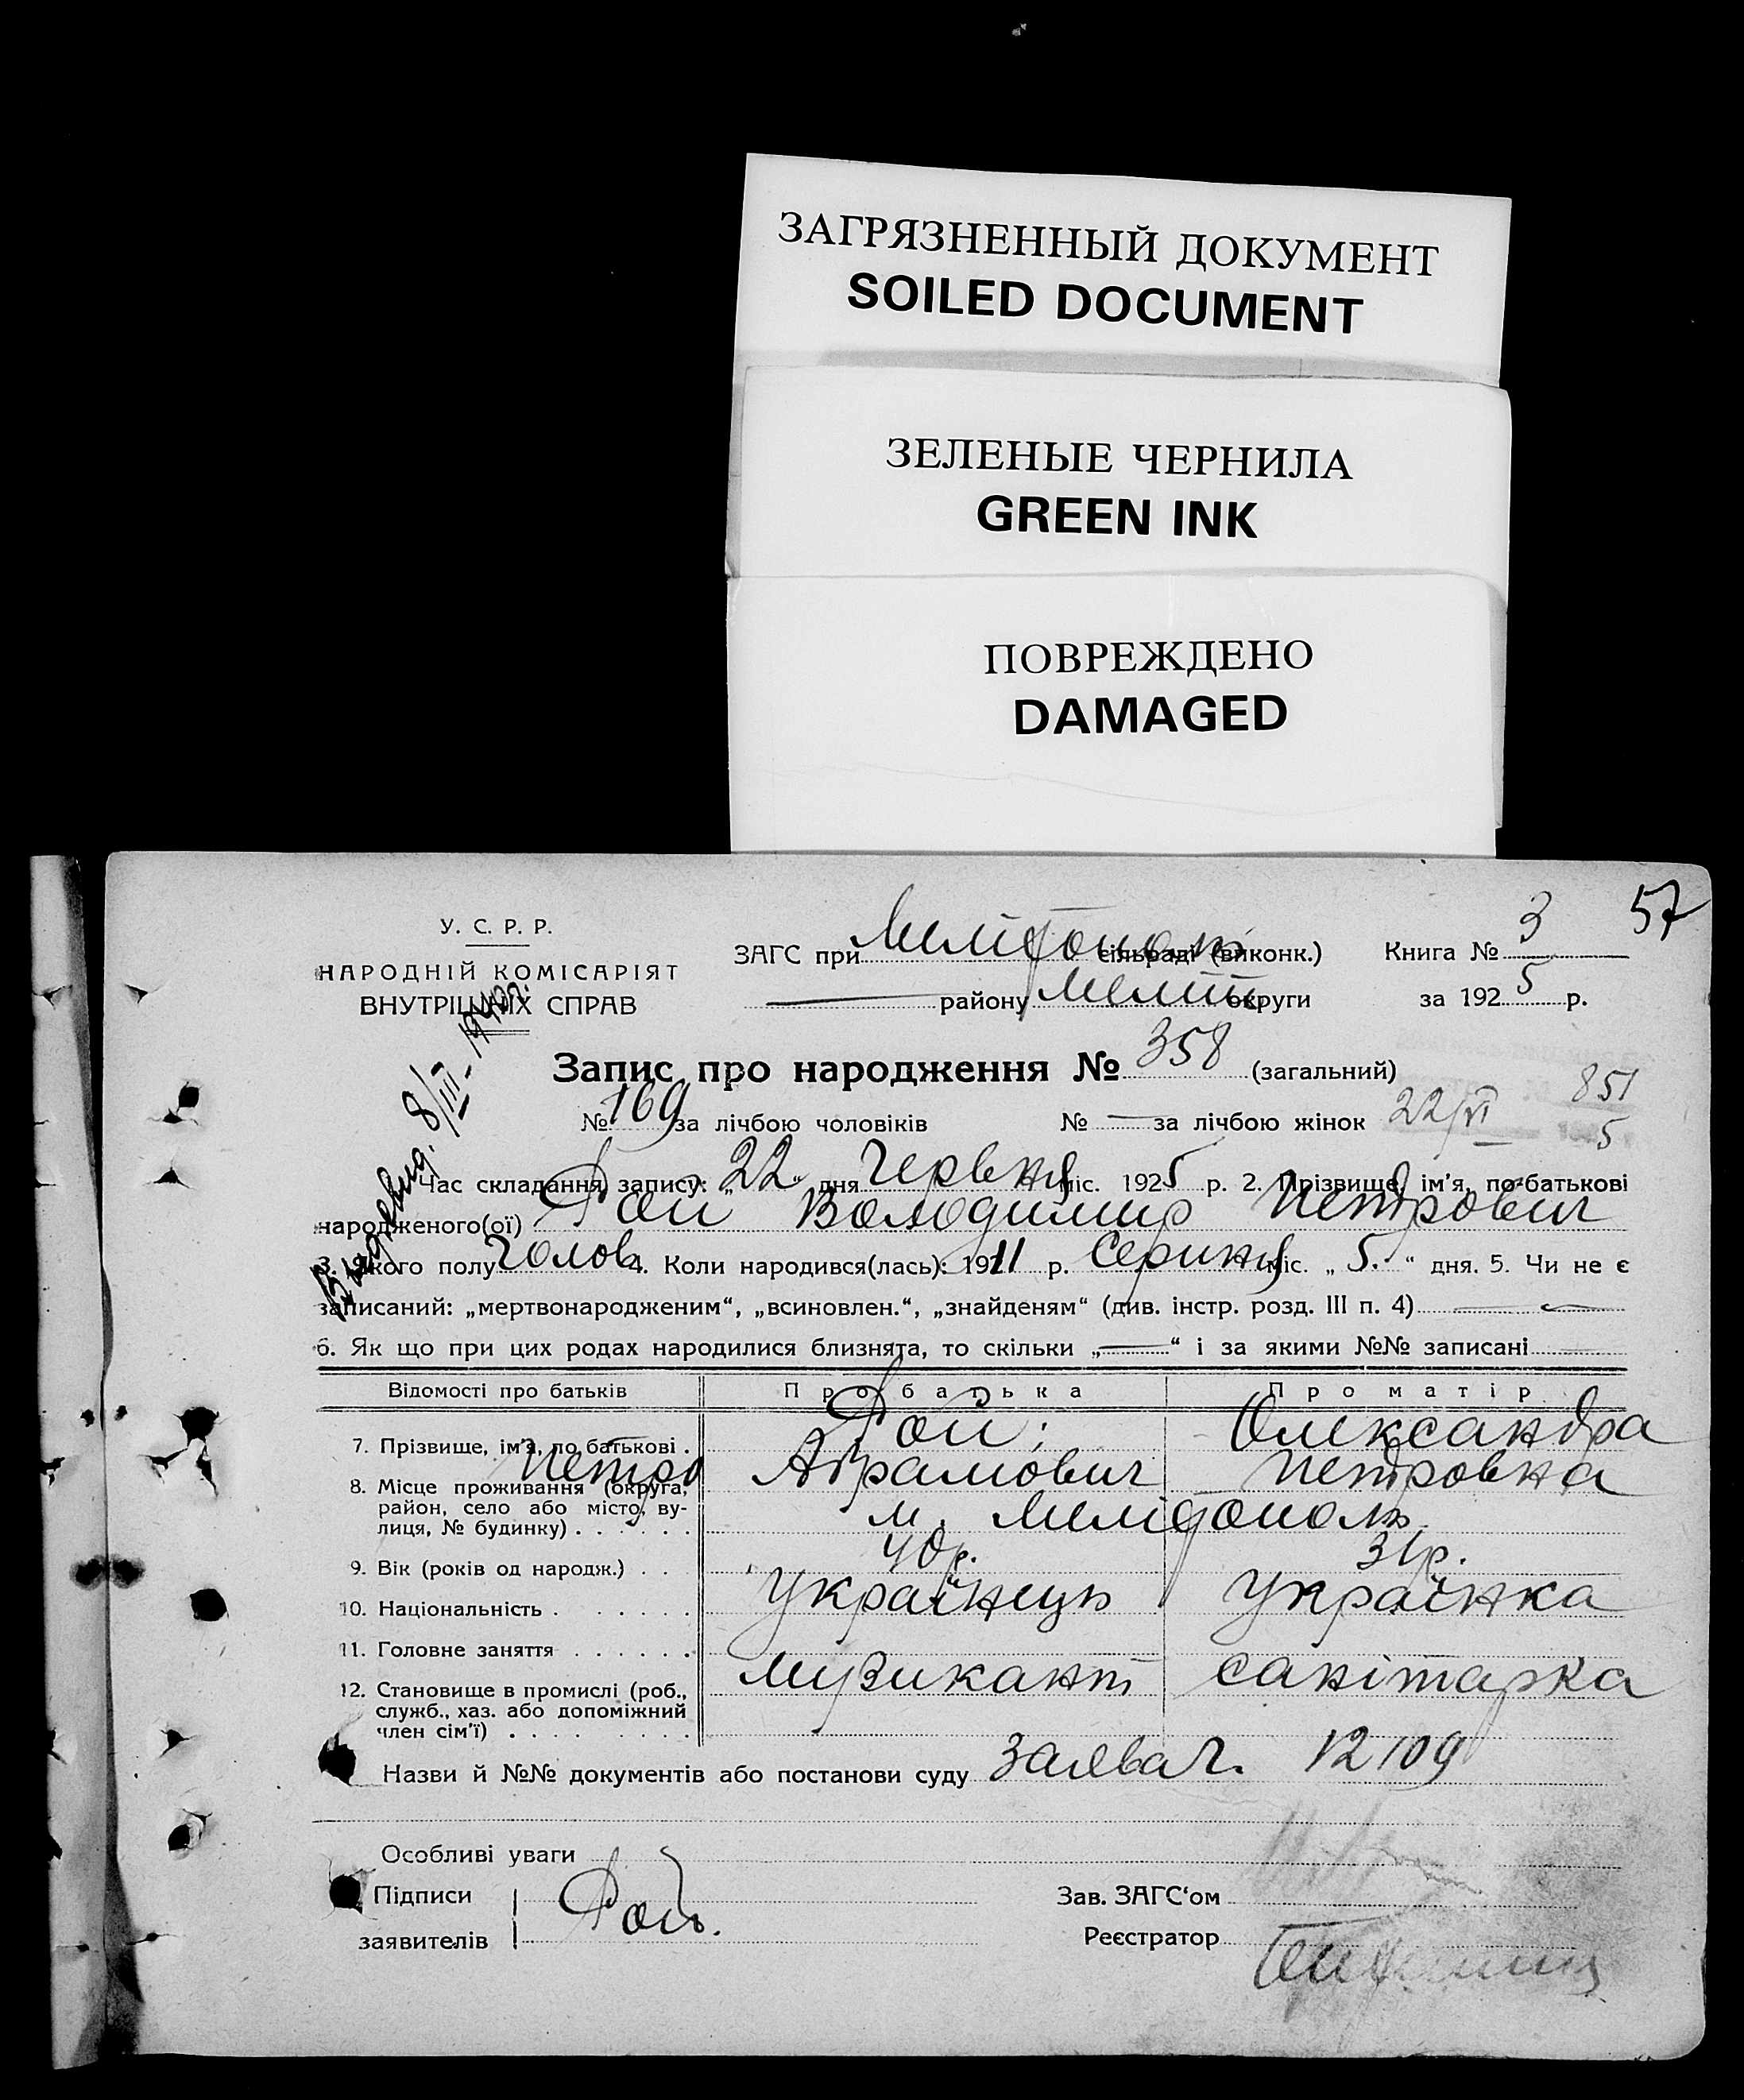 ЗАГРЯЗНЕННЫЙ ДОКУМЕНТ
SOILED DOCUMENT
ЗЕЛЕНЫЕ ЧЕРНИЛА
GREEN INK
ПОВРЕЖДЕНО
DAMAGED
57
У. С. Р. Р.
НАРОДНІЙ КОМІСАРІЯТ
ВНУТРІШНІХ СПРАВ
ЗАГС при Мелітополь сільраді (виконк.) Книга № 3
района Меліт округи за 1925 р.
Запис про народження № 358 (загальний)
851
№ 169 за лічбою чоловіків № — за лічбою жінок 22/VI 5
8/III - 
Час складання запису: „22“ дня Червня міс. 1925 р. 2. Прізвище, ім'я, по-батькові
народженого(ої) Рой Володимир Петрович
3. Якого полу чолов. 4. Коли народився(лась): 1911 р. Серпня міс. „5.“ дня. 5. Чи не є
записаний: „мертвонародженим“, „всиновлен.“, „знайденям“ (див. інстр. розд. III п. 4) —
6. Як що при цих родах народилися близнята, то скільки „—“ і за якими №№ записані
Відомості про батьків Про батька Про матір
7. Прізвище, ім'я, по батькові . Рой; Олександра
Петро Абрамович Петровна
8. Місце проживання (округа, район, село або місто, ву-
лиця, № будинку) . . . . . . м. Мелітополь
9. Вік (років од народж.) . . 40 р. 31 р.
10. Національність . . . . . . Українець Українка
11. Головне заняття . . . . . .
музикант санітарка
12. Становище в промислі (роб.,
служб., хаз. або допоміжний
член сім'ї) . . . .
Назви й №№ документів або постанови суду Заява ч. 12109
Особливі уваги
Підписи Рой. Зав. ЗАГС'ом
заявителів Реєстратор